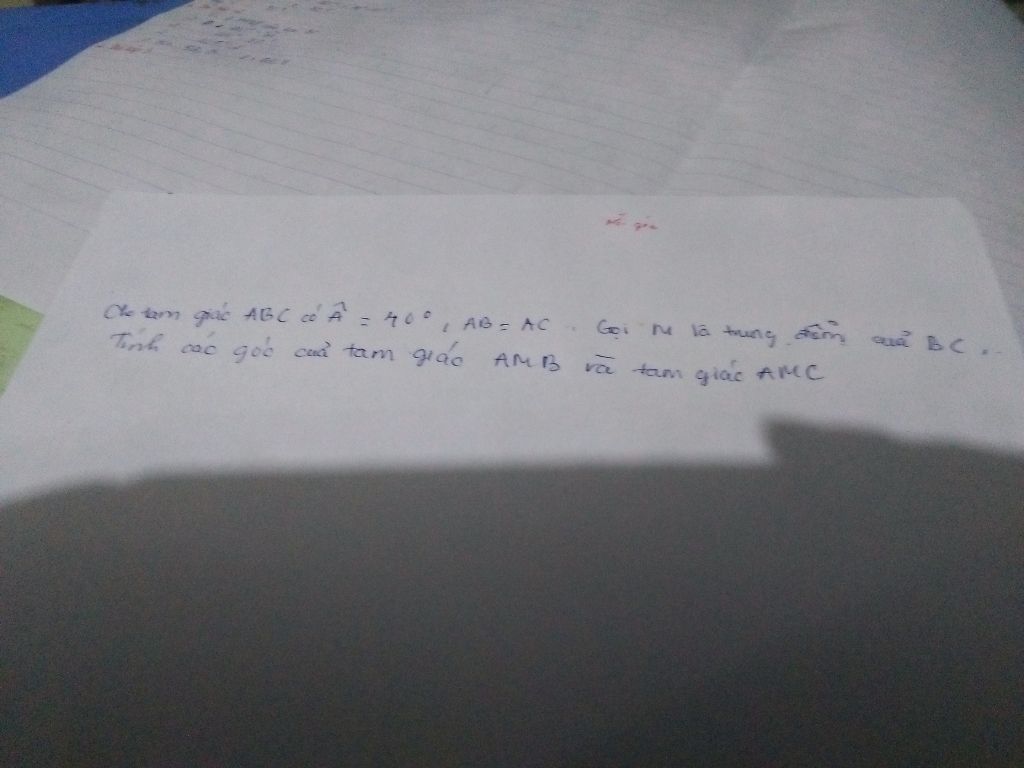 Cho tam giác ABC có Â = 40°, AB = AC. Gọi M là trung điểm của BC.
Tính các góc của tam giác AMB và tam giác AMC